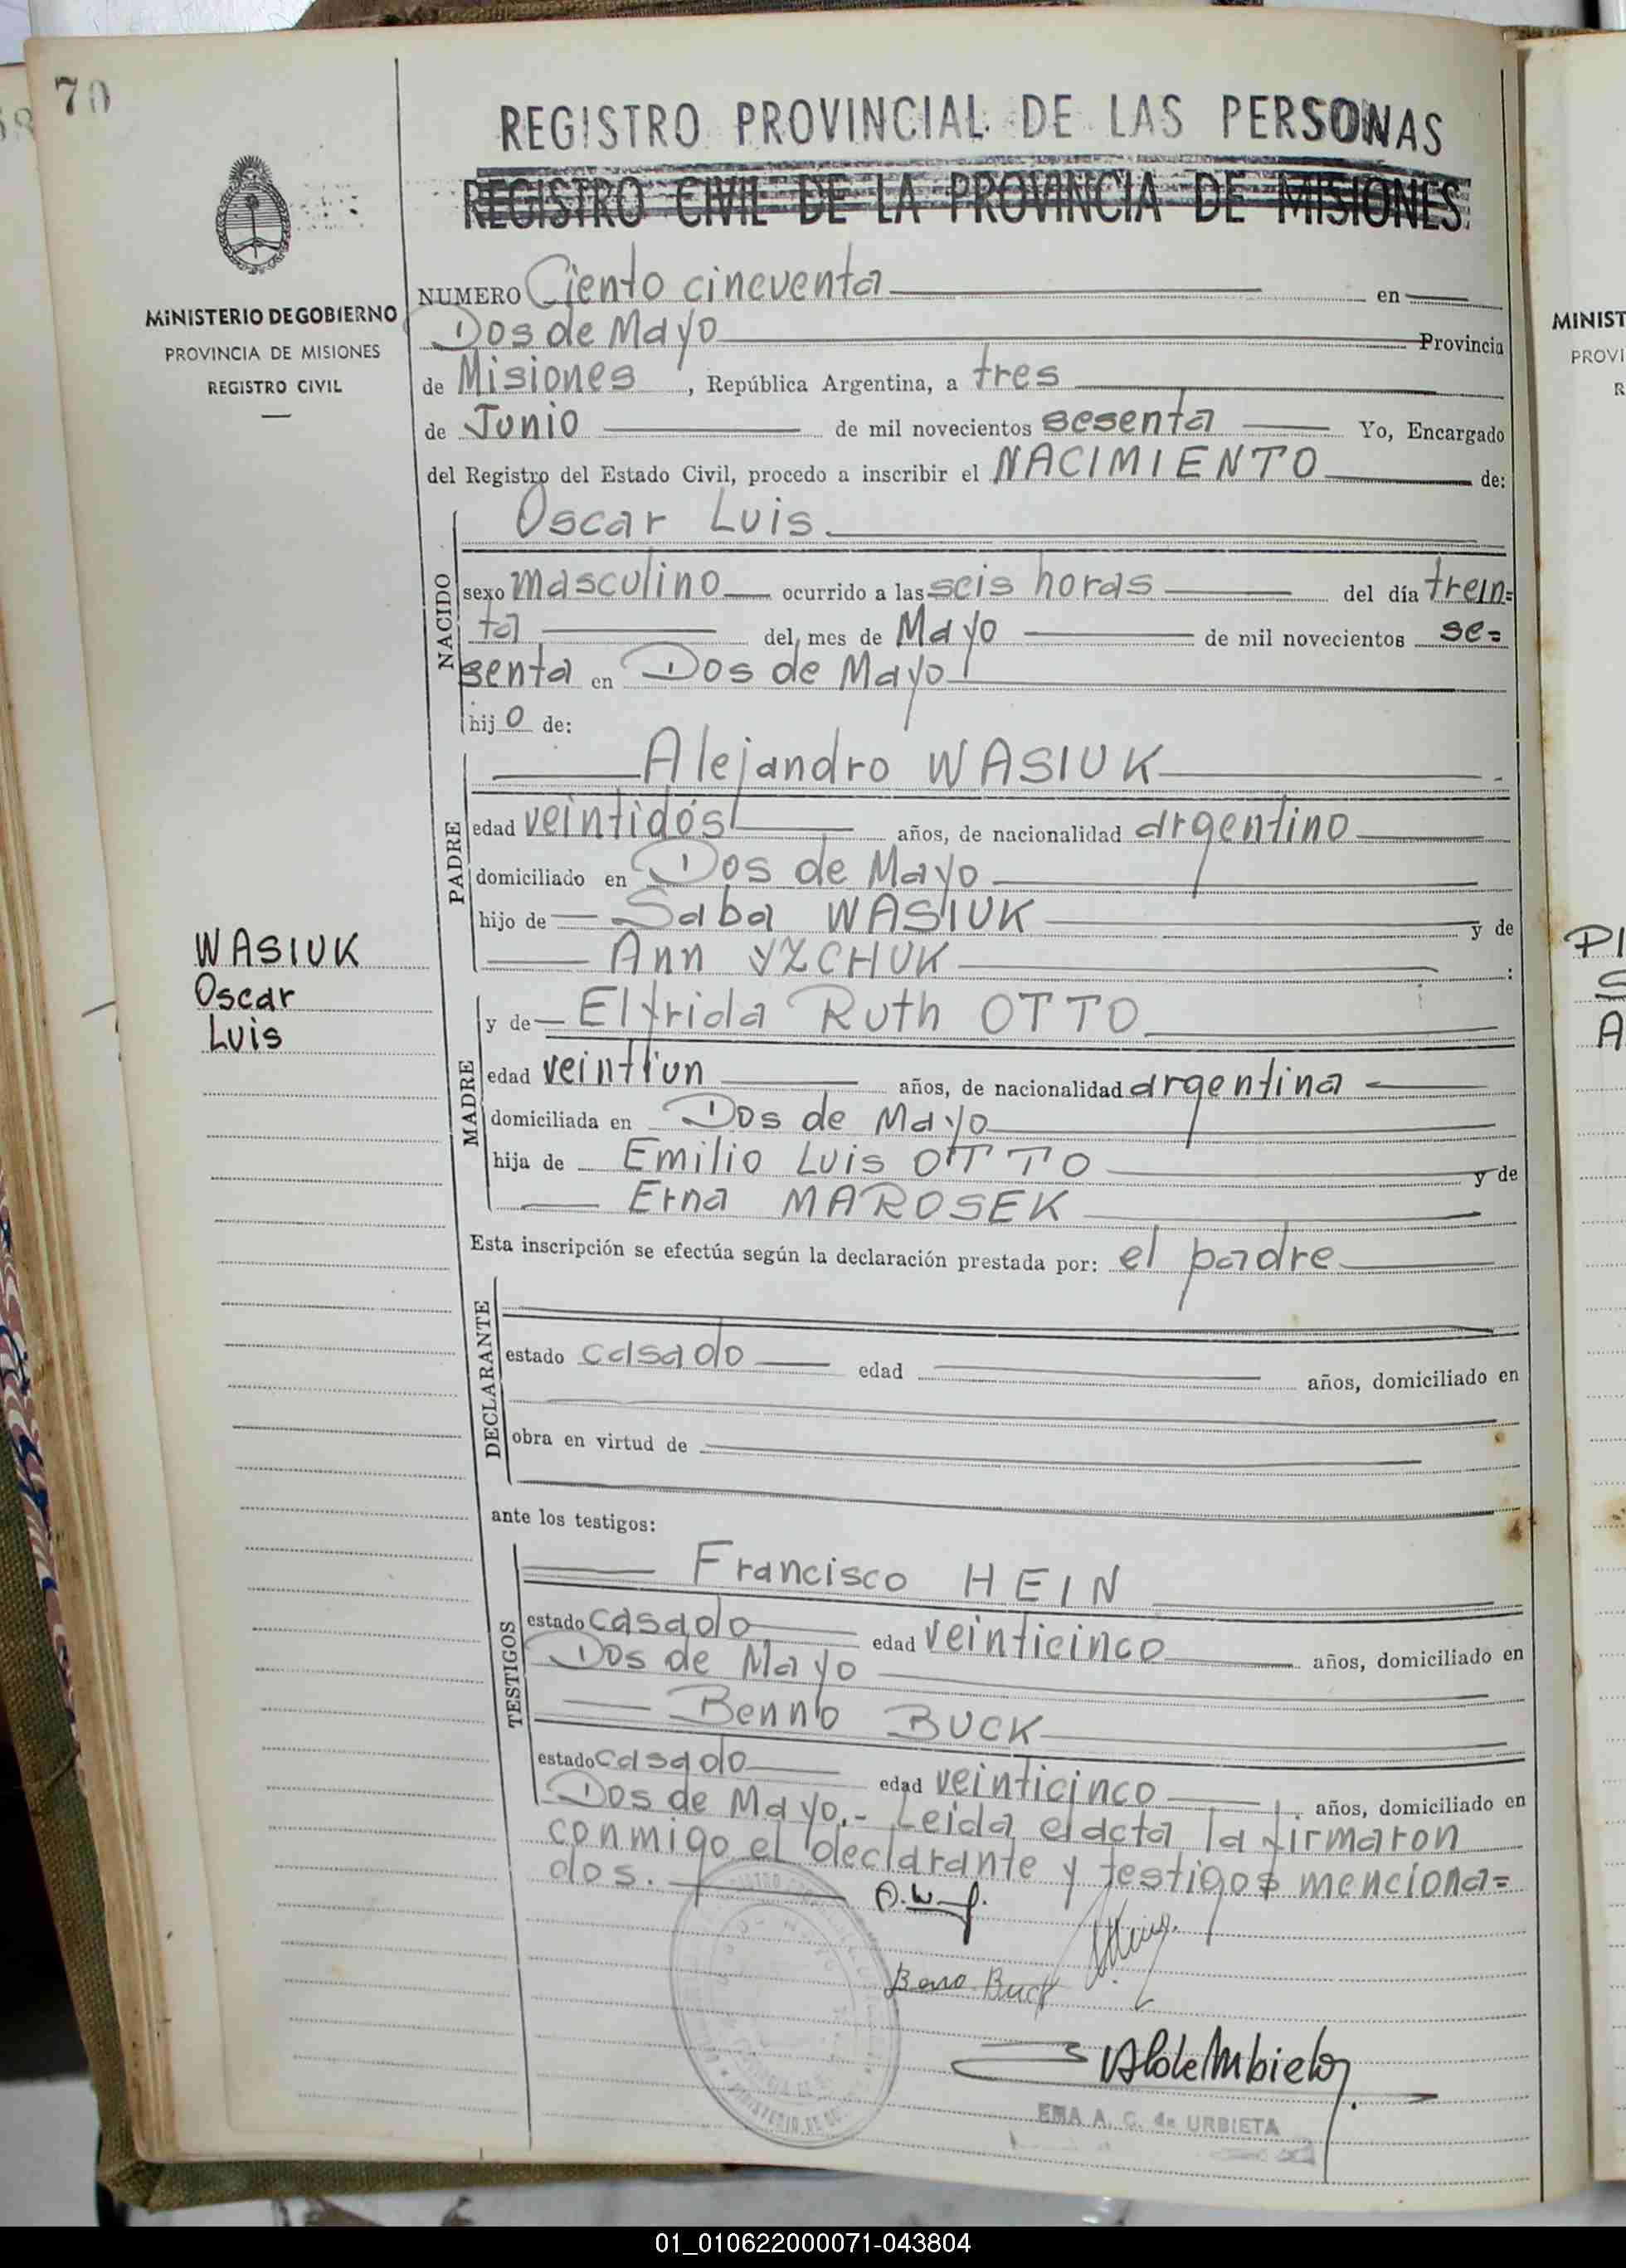 70
REGISTRO PROVINCIAL DE LAS PERSONAS
REGISTRO CIVIL DE LA PROVINCIA DE MISIONES
MINISTERIO DE GOBIERNO
PROVINCIA DE MISIONES
REGISTRO CIVIL
NUMERO Ciento cincuenta en
Dos de Mayo Provincia
de Misiones, República Argentina, a tres
de Junio de mil novecientos sesenta Yo, Encargado
del Registro del Estado Civil, procedo a inscribir el NACIMIENTO de:
NACIDO
Oscar Luis.
sexo masculino ocurrido a las seis horas del día trein=
ta del mes de Mayo de mil novecientos se=
senta en Dos de Mayo
hijo de:
PADRE
Alejandro WASIUK
edad veintidós años, de nacionalidad argentino
domiciliado en Dos de Mayo
hijo de Saba WASIUK y de
Ann YZCHUK :
WASIUK
Oscar
Luis
MADRE
y de Elfrida Ruth OTTO
edad veintiun años, de nacionalidad argentina
domiciliada en Dos de Mayo
hija de Emilio Luis OTTO y de
Erna MAROSEK
Esta inscripción se efectúa según la declaración prestada por: el padre
DECLARANTE
estado casado edad años, domiciliado en
obra en virtud de
ante los testigos:
TESTIGOS
Francisco HEIN
estado casado edad veinticinco años, domiciliado en
Dos de Mayo
Benno BUCK
estado casado edad veinticinco años, domiciliado en
Dos de Mayo.- Leida el acta la firmaron
conmigo el declarante y testigos menciona=
dos.
A.W.
Beno Buck
EMA A. C. de URBIETA
MINIST
PROVI
R
PI
S
A
01_010622000071-043804